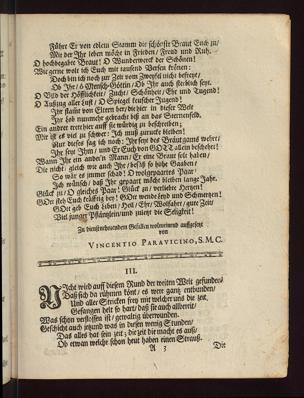 Führt Er von edlem Stamm die schönste Braut Euch zu/
Mit der Ihr leben möcht in Frieden/ Freud und Ruh.
O hochbegabte Braut! O Wunderwerck der Schönen!
Wie gerne wolt ich Euch mit tausend Versen krönen:
Doch bin ich noch zur Zeit vom Zweyfel nicht befreyt/
Ob Ihr/ ô Mensch-Göttin/ Ob Ihr auch sterblich seyt.
O Bild der Höfflichkeit/ Zucht/ Schönheit/ Ehr und Tugend!
O Außzug aller Lust/ O Spiegel teutscher Jugend!
Ein andrer trete hier auff sie würdig zu beschreiben;
Mir ist es viel zu schwer: Ich muß zurucke bleiben!
Nur dieses sag ich noch: Ihr seyt des Bräutgams wehrt/
Ihr seyt Ihm/ und Er Euch von GOTT allein beschehrt!
Wann Ihr ein ander'n Mann/ Er eine Braut solt haben/
Die nicht/ gleich wie auch Ihr/ besäß so hohe Gaaben/
So wär es immer schad! O wolgepaartes Paar/
Ich wünsch/ daß Ihr gepaart möcht bleiben lange Jahr.
Glück zu/ O gleiches Paar! Glück zu/ verliebte Hertzen!
GOtt steh Euch kräfftig bey! GOtt wende Leyd und Schmertzen!
GOtt geb Euch Leben/ Heil/ Ehr/ Wolfahrt/ gute Zeit/
Viel junger Pfläntzlein/ und zuletzt die Seligkeit!
Zu dienstbehrenden Gefallen wolmeinend auffgesetzt
von
VINCENTIO PARAVICINO, S.M.C.
III.
NIcht wird auff diesem Rund der weiten Welt gefunden/
Daß sich da rühmen könt/ es were gantz entbunden/
Und aller Stricken frey mit welcher uns die Zeit,
Gefangen helt so hart/ daß sie auch allbereit/
Was schon verflossen ist/ gewaltig überwunden.
Geschicht auch jemand was in diesen wenig Stunden/
Das alles hat sein Zeit; die Zeit die macht es auß/
Ob etwan welche schon heut haben einen Strauß.
A 3
Mit